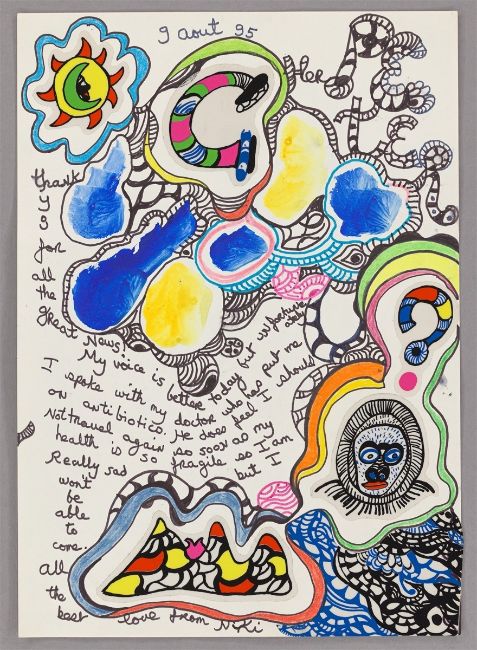 9 aout 95
Her PETER
thank
y
for
all
the
great News!
My voice is better today
I spoke with my doctor who has put me
on antibiotics. He does feel I should
Not travel again so soon as my
health is so fragile so I am
Really sad but I
won't
be
able
to
come.
All
the
best love from Niki